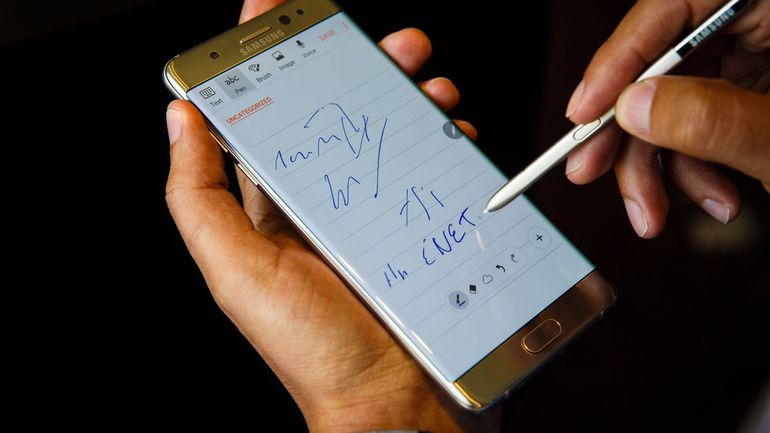 SAMSUNG
Text
abc
Pen
Brush
Image
Voice
SAVE
UNCATEGORIZED
Hi
CNET
SAMSUNG